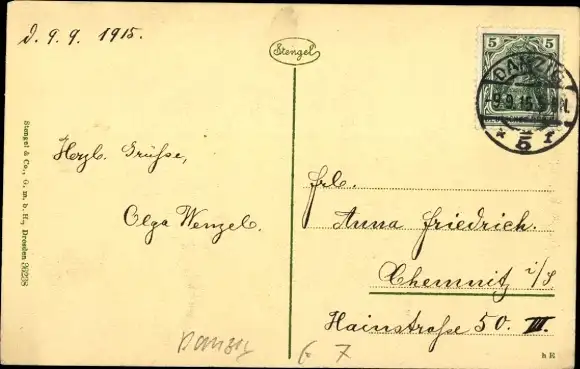 D. 9. 9. 1915.
Stengel
5 5
DANZIG
9.9.15. N.
* 5 f
Herzl. Grüße,
Olga Wenzel.
Frl.
Anna Friedrich.
Chemnitz i/S
Hainstraße 50. III.
Stengel & Co., G. m. b. H., Dresden 36238
Danzig
7
h E